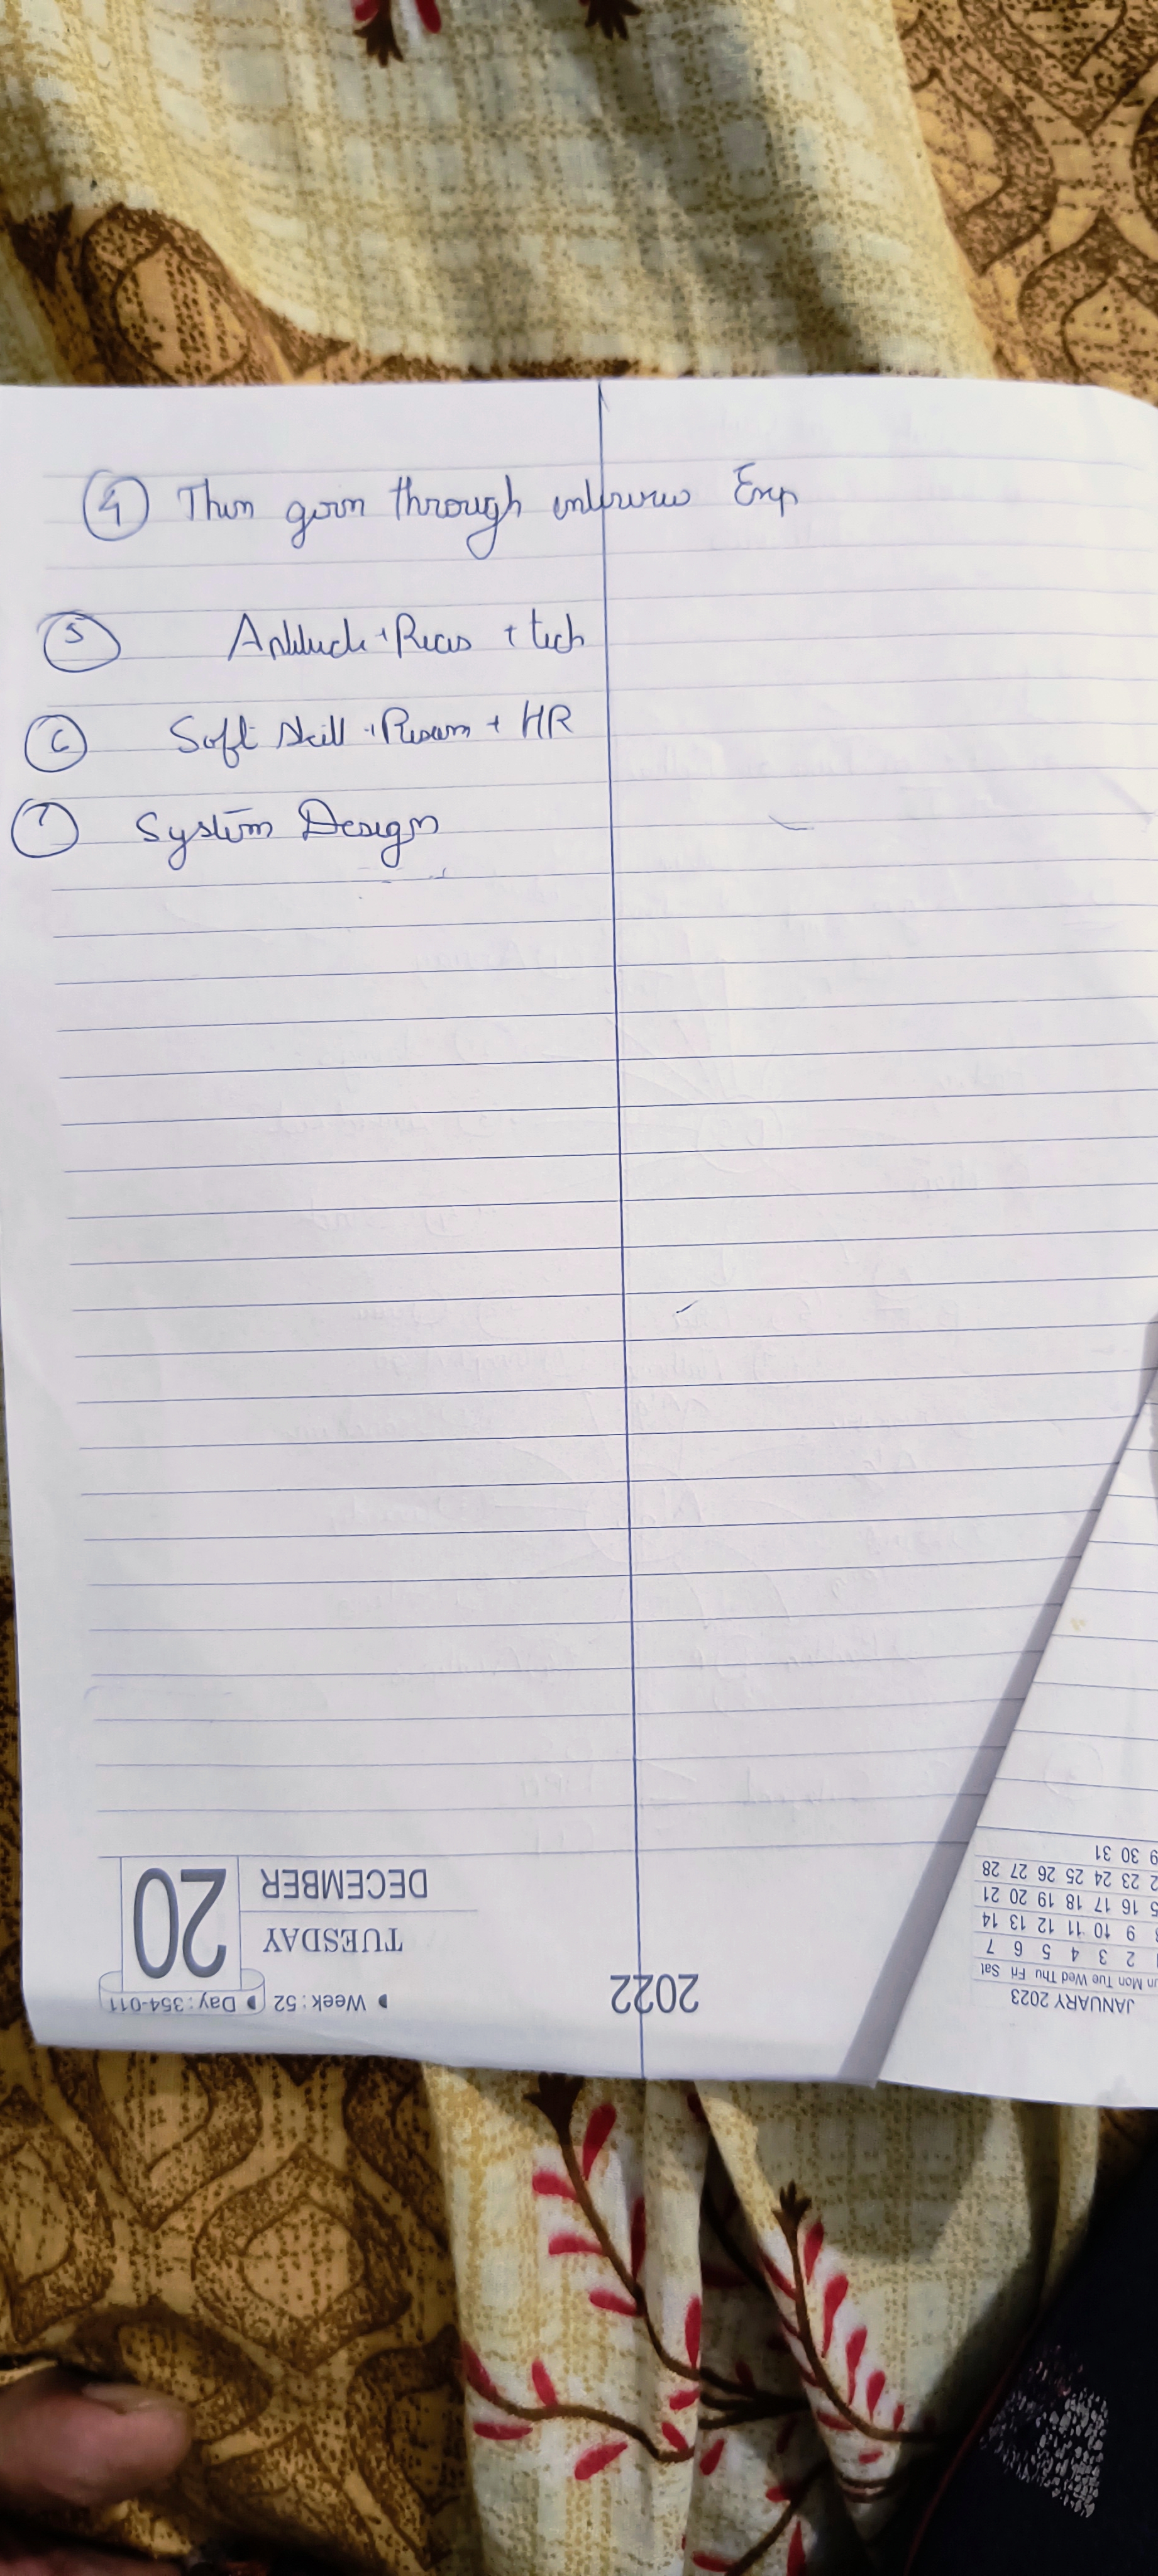 ④ Then goin through interview Exp
⑤ Aptitude + Reas + tech
⑥ Soft skill + Resum + HR
⑦ System Design
20
DECEMBER
TUESDAY
Week : 52 Day : 354-011
2022
JANUARY 2023
Mon Tue Wed Thu Fri Sat
2 3 4 5 6 7
9 10 11 12 13 14
16 17 18 19 20 21
23 24 25 26 27 28
30 31